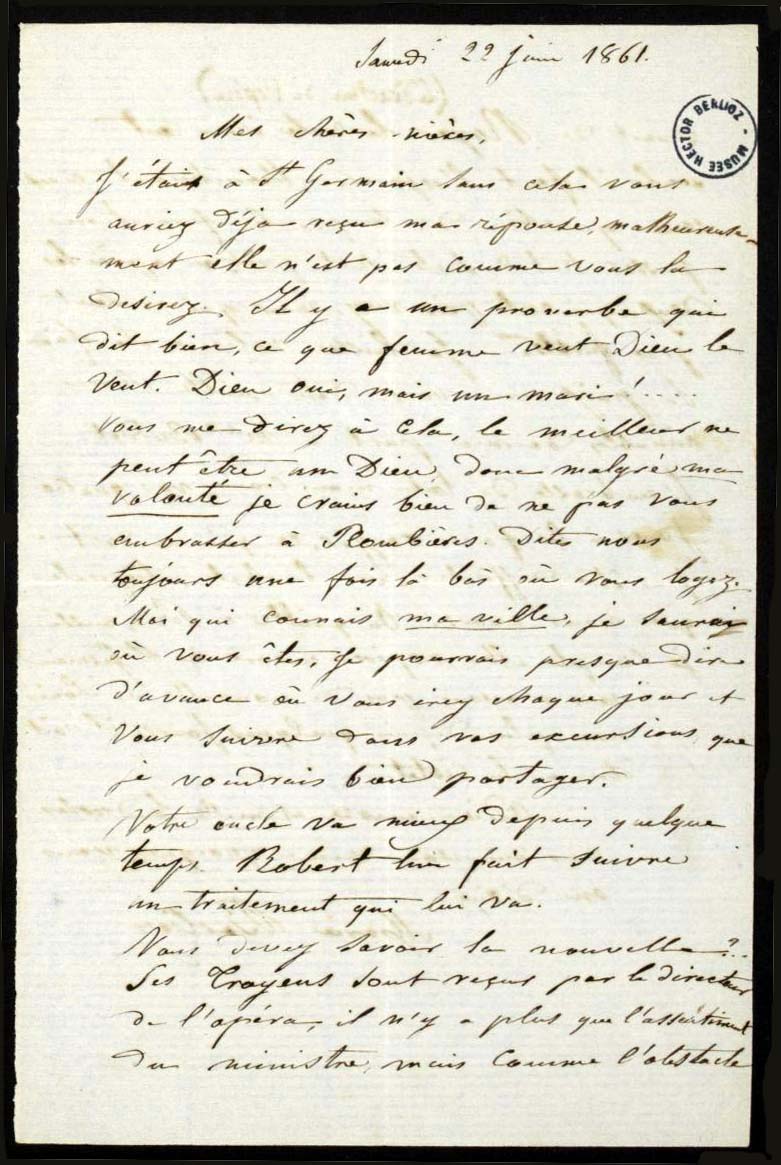 Samedi 22 juin 1861.
MUSEE HECTOR BERLIOZ -
Mes chères nièces,
J'étais à St Germain sans cela vous
auriez déja reçu ma réponse, malheureuse-
ment elle n'est pas comme vous la
desirez. Il y a un proverbe qui
dit bien, ce que femme veut Dieu le
veut. Dieu oui, mais un mari !....
vous me direz à cela, le meilleur ne
peut être un Dieu, donc malgré ma
volonté je crains bien de ne pas vous
embrasser à Plombières. Dites nous
toujours une fois là bas où vous logez.
Moi qui connais ma ville, je saurai
où vous êtes, je pourrais presque dire
d'avance où vous irez chaque jour et
vous suivre dans vos excursions que
je voudrais bien partager.
Votre oncle va mieux depuis quelque
temps. Robert lui fait suivre
un traitement qui lui va.
Vous devez savoir la nouvelle ?..
Les Troyens sont reçus par le directeur
de l'opéra, il n'y a plus que l'assentiment
du ministre, mais comme l'obstacle